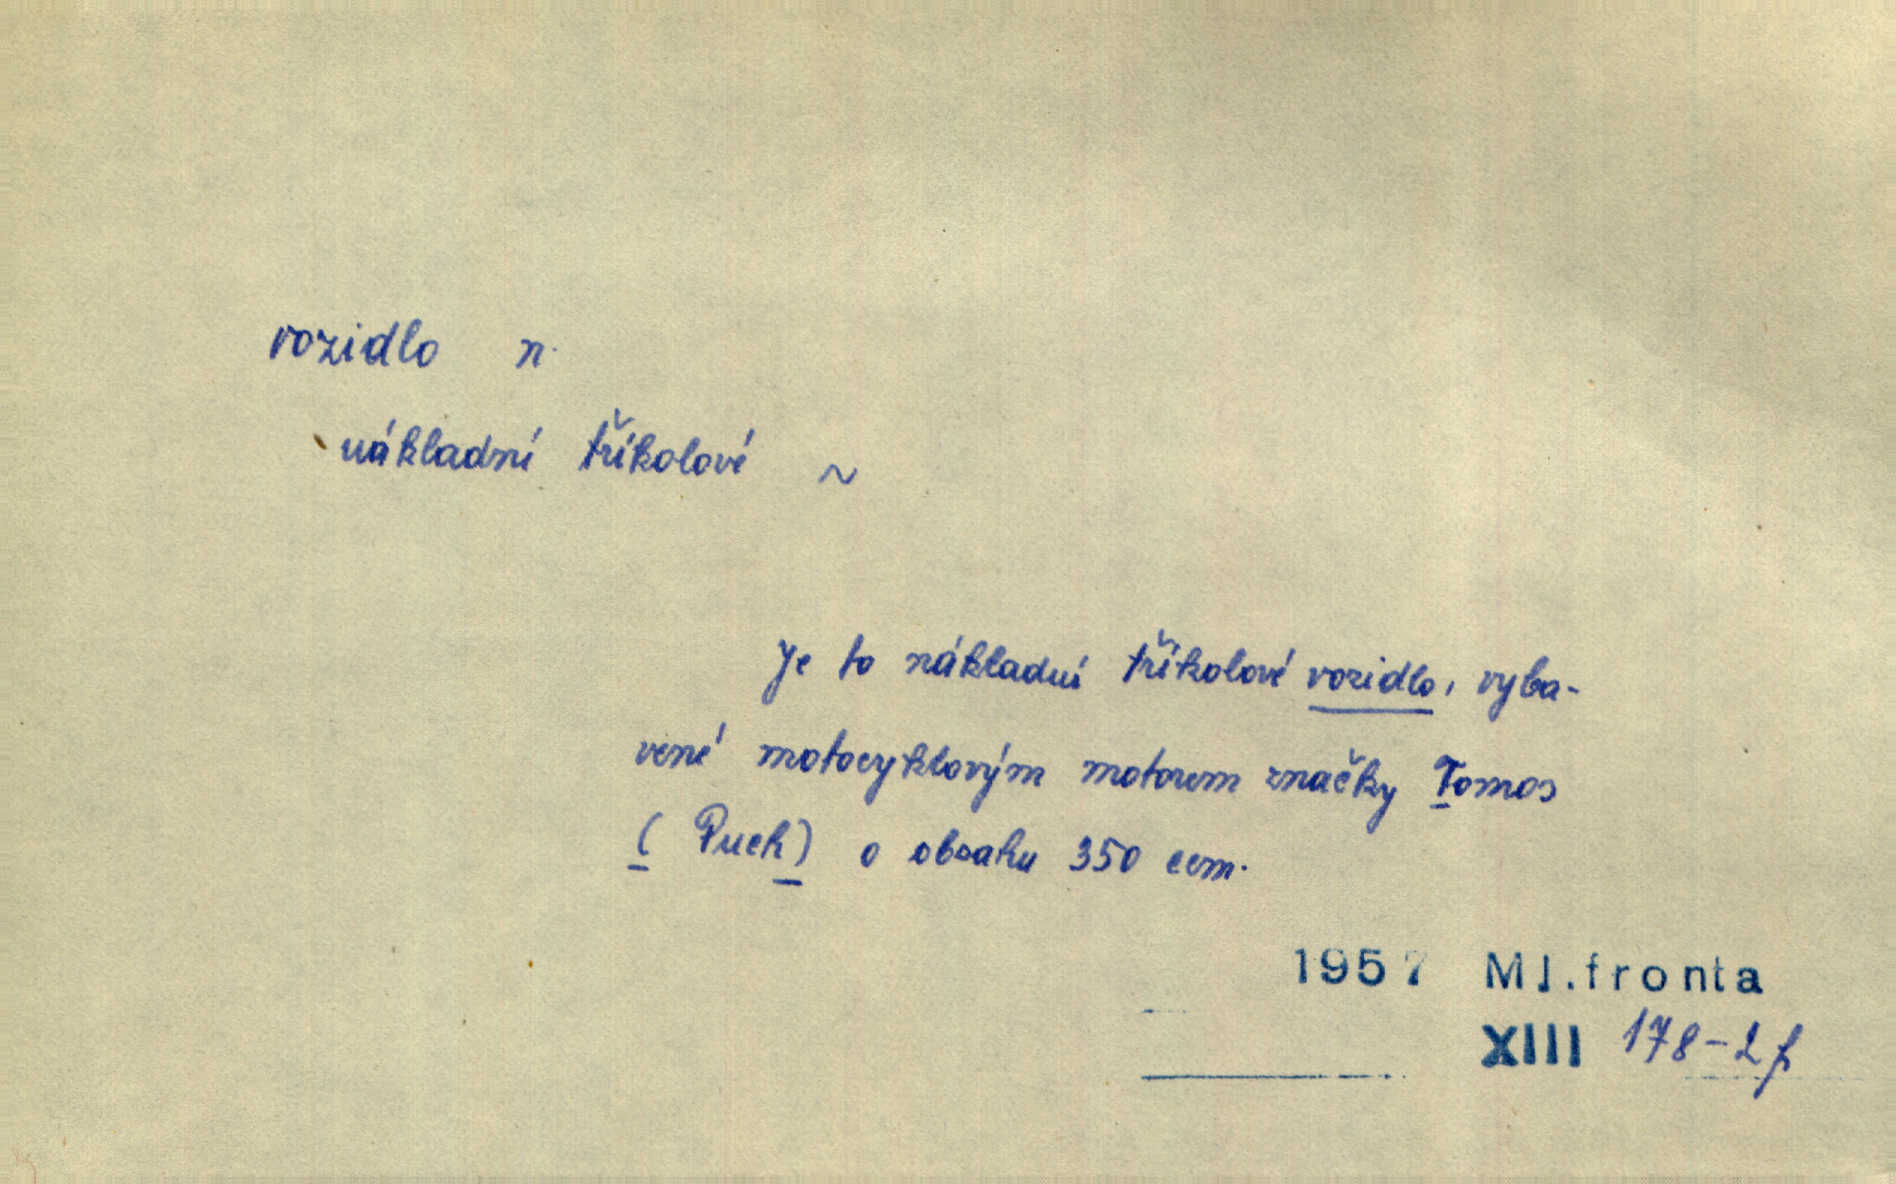 vozidlo n.
nákladní tříkolové ~
Je to nákladní tříkolové vozidlo, vyba-
vené motocyklovým motorem značky Tomos
( Puch) o obsahu 350 ccm.
1957 Ml.fronta
XIII 178-2f